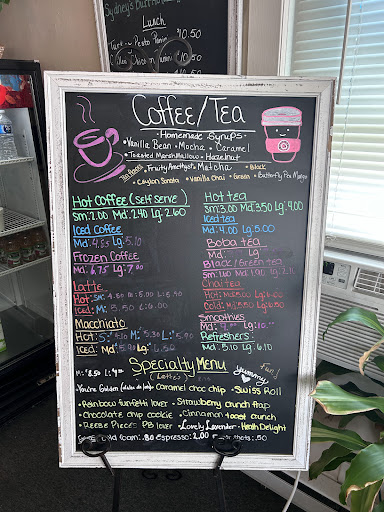 Sydney's
Lunch
Pesto Panini $10.50
10.50
Coffee/Tea
•Homemade Syrups•
•Vanilla Bean •Mocha •Caramel
•Toasted Marshmallow •Hazelnut
Fruity Amethyst• Matcha •Black
•Ceylon Sonata •Vanilla Chai •Green •Butterfly Pea Mango
Hot Coffee (self serve)
Sm: 2.00 Md: 2.40 Lg: 2.60
Iced Coffee
Md: 4.65 Lg: 5.10
Frozen Coffee
Md: 6.75 Lg: 7.00
Latte
Hot: Sm: 4.50 M: 5.00 L: 5.50
Iced: M: 5.50 L: 6.00
Macchiato
Hot: M: 5.30 L: 5.90
Iced: Md: 5.90 Lg: 6.50
Hot tea
Sm: 3.00 Md: 3.50 Lg: 4.00
Iced tea
Md: 4.00 Lg: 5.00
Boba tea
Md: Lg:
Black/Green tea
Sm: Md: 1.90 Lg:
Chai tea
Hot: Md: 5.00 Lg: 6.00
Cold: Md: 5.50 Lg: 6.50
Smoothies
Md: Lg:
Refreshers
Md: 5.10 Lg: 6.10
Specialty Menu
(Lattes)
yummy
Fun!
•You're Golden caramel choc chip •Swiss Roll
•Rainbow funfetti lover •Strawberry crunch frap
•Chocolate chip cookie •Cinnamon toast crunch
•Reese Pieces PB lover •Lovely Lavender •Heath Delight
foam: .80 espresso: 2.00 shots: .50